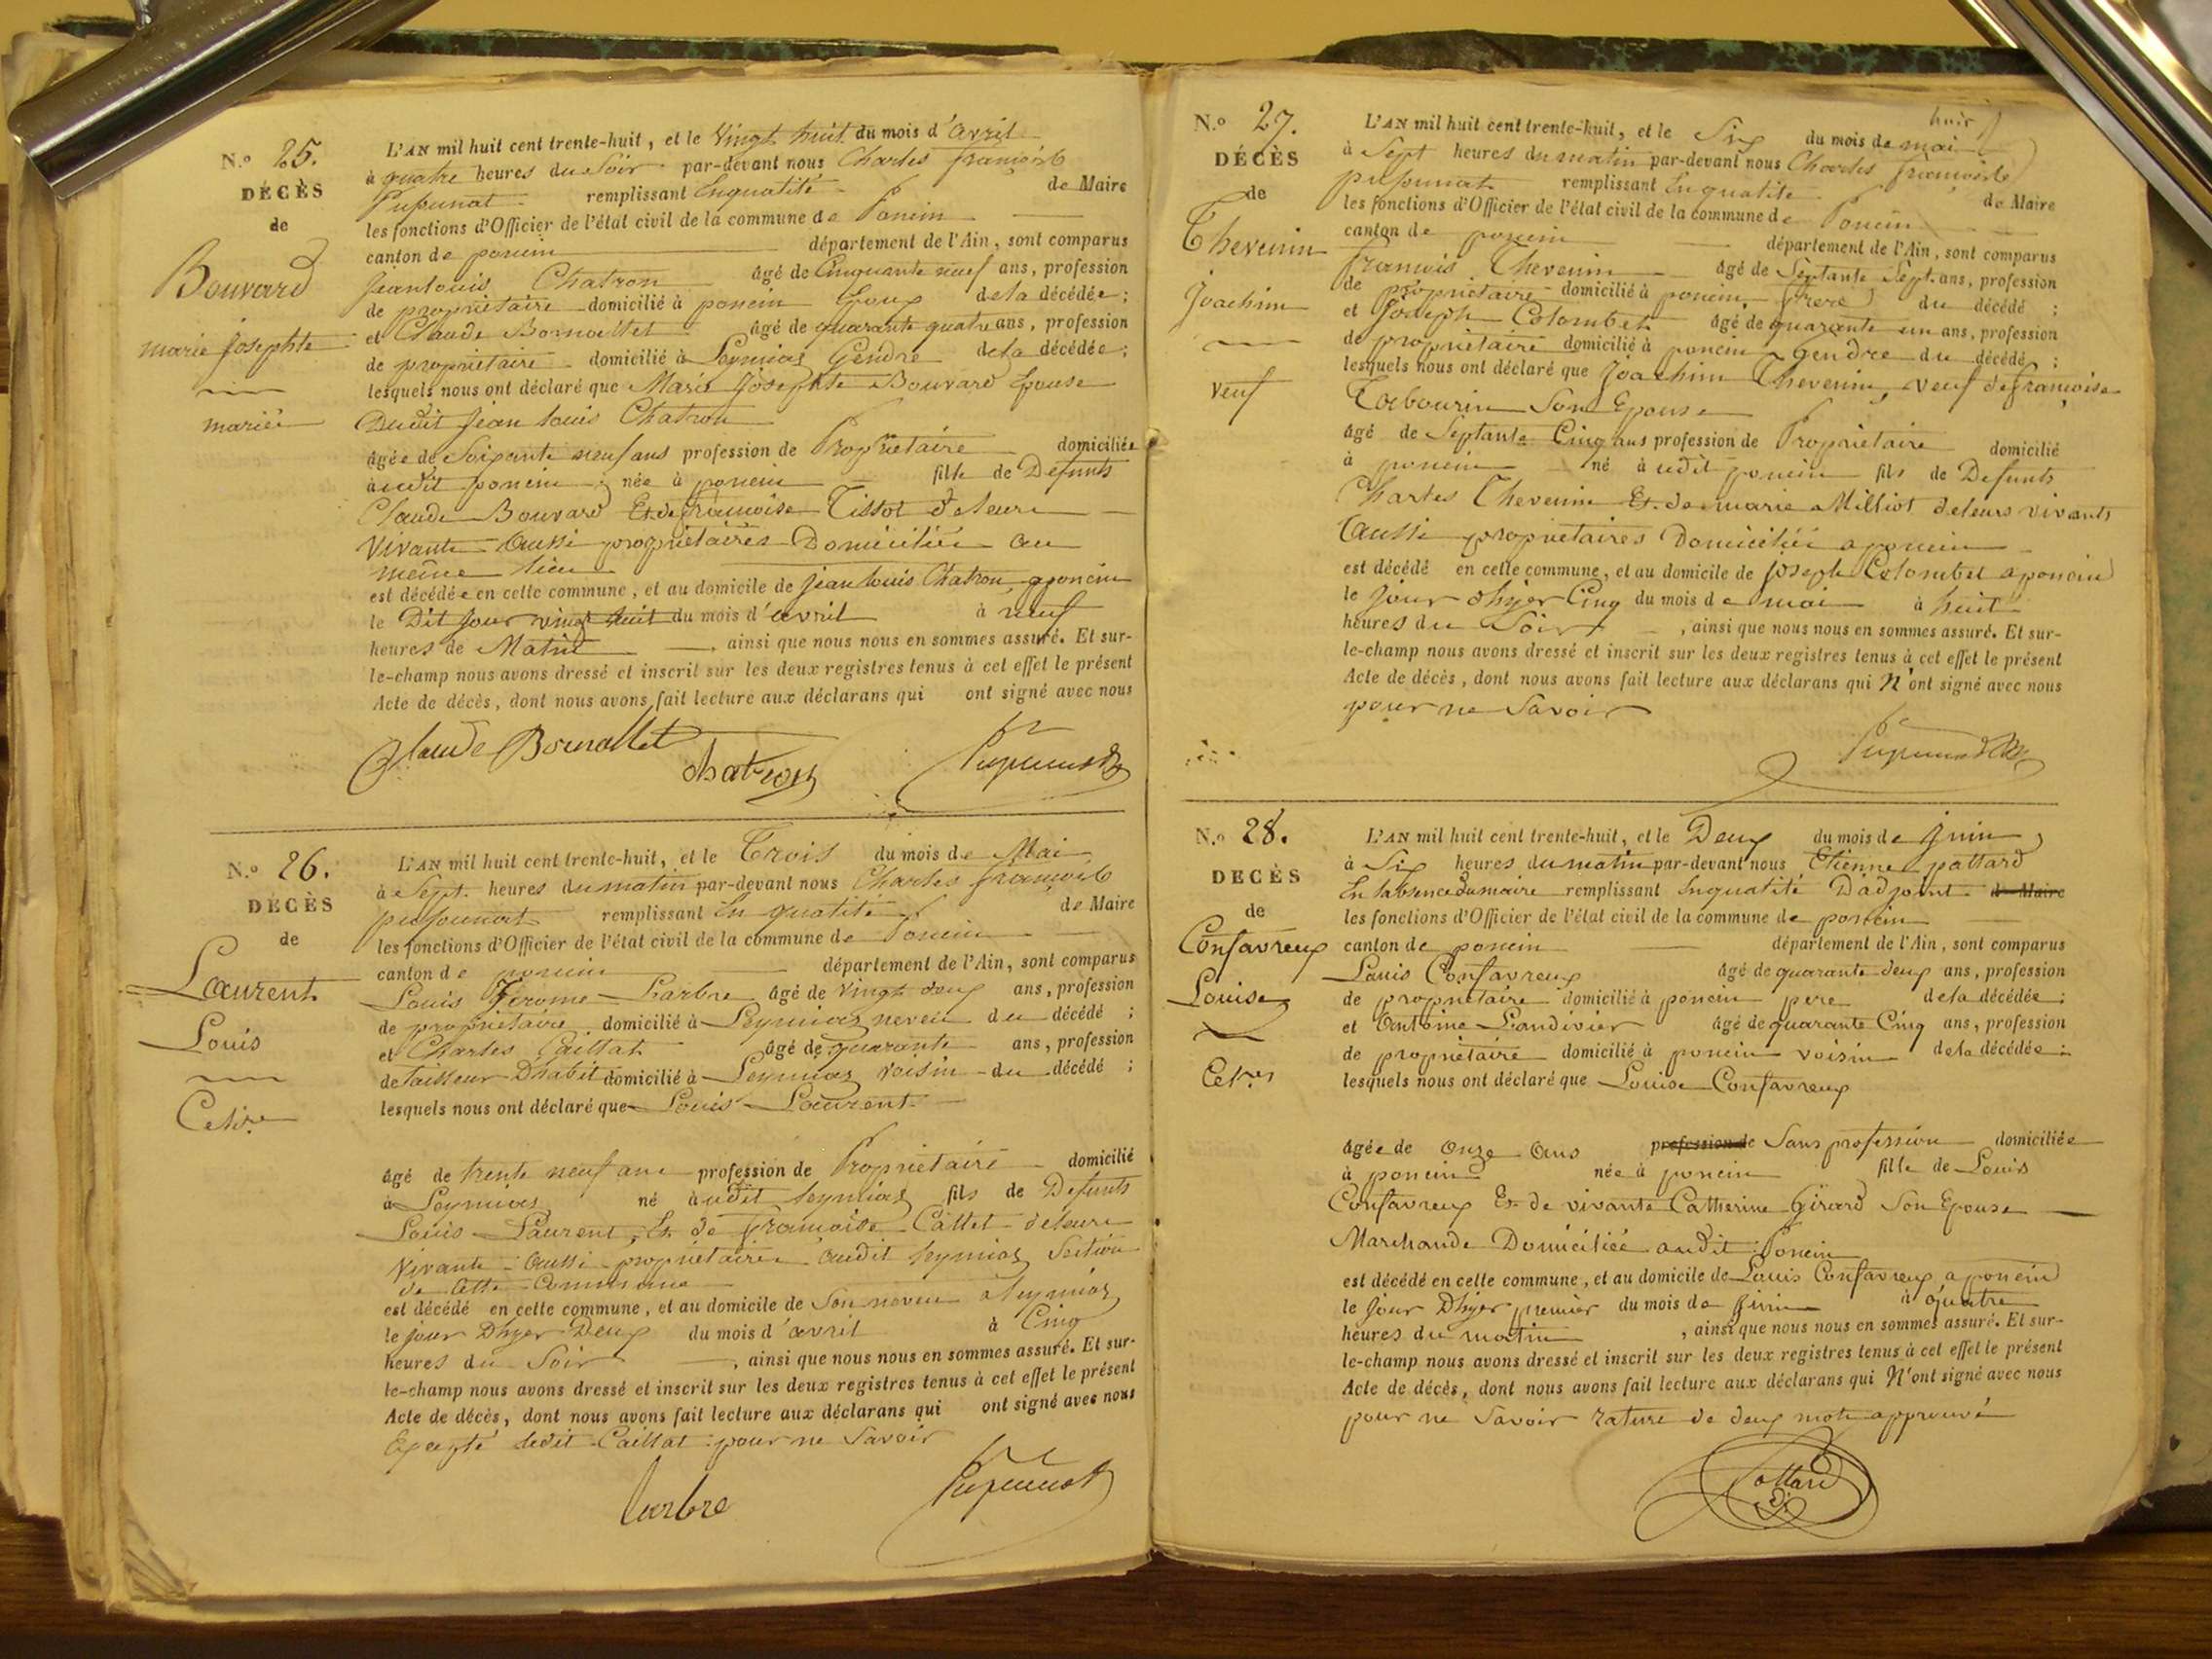 N.o 25.
DÉCÈS
de
Bouvard
marie Josephte
mariée
L'AN mil huit cent trente-huit, et le Vingt huit du mois d'avril
à quatre heures du Soir par-devant nous Charles françois
Pupunat remplissant En qualité de Maire
les fonctions d'Officier de l'état civil de la commune de Poncin
canton de poncin département de l'Ain, sont comparus
Jean louis Chatron âgé de Cinquante neuf ans, profession
de propriétaire domicilié à poncin Epoux de la décédée;
et Claude Bornallet âgé de quarante quatre ans, profession
de propriétaire domicilié à Leymiaz Gendre de la décédée;
lesquels nous ont déclaré que Marie Josephte Bouvard Epouse
Dudit Jean louis Chatron
âgée de Soixante neuf ans profession de Propriétaire domiciliée
audit poncin née à poncin fille de Defunts
Claude Bouvard Et de françoise Tissot de leurs
Vivants aussi propriétaires Domiciliés au
même lieu
est décédée en cette commune, et au domicile de jean louis Chatron a poncin
le Dit Jour vingt huit du mois d'avril à neuf
heures de Matin, ainsi que nous nous en sommes assuré. Et sur-
le-champ nous avons dressé et inscrit sur les deux registres tenus à cet effet le présent
Acte de décès, dont nous avons fait lecture aux déclarans qui ont signé avec nous
Claude Bornallet
chatron
Pupunat
N.o 26.
DÉCÈS
de
Laurent
Louis
Celibre
L'AN mil huit cent trente-huit, et le Trois du mois de Mai
à Sept heures du matin par-devant nous Charles françois
pupunat remplissant En qualité de Maire
les fonctions d'Officier de l'état civil de la commune de Poncin
canton de poncin département de l'Ain, sont comparus
Louis Jérome Larbre âgé de vingt deux ans, profession
de propriétaire domicilié à Leymiaz neveu du décédé;
et Charles Caillat âgé de quarante ans, profession
de tailleur D'habit domicilié à Leymiaz voisin du décédé;
lesquels nous ont déclaré que Louis Laurent
âgé de trente neuf ans profession de Propriétaire domicilié
à Leymiaz né audit leymiaz fils de Defunts
Louis Laurent, Et de françoise Cattet de leurs
Vivants aussi propriétaires audit leymiaz Section
de Cette Commune
est décédé en cette commune, et au domicile de Son neveu a leymiaz
le jour D'hyer Deux du mois d'avril à Cinq
heures du Soir, ainsi que nous nous en sommes assuré. Et sur-
le-champ nous avons dressé et inscrit sur les deux registres tenus à cet effet le présent
Acte de décès, dont nous avons fait lecture aux déclarans qui ont signé avec nous
Excepté ledit Caillat pour ne Savoir
larbre
Pupunat
N.o 27.
DÉCÈS
de
Thevenin
Joachim
veuf
L'AN mil huit cent trente-huit, et le Six du mois de mai
à Sept heures du matin par-devant nous Charles françois
pupunat remplissant En qualité de Maire
les fonctions d'Officier de l'état civil de la commune de Poncin
canton de poncin département de l'Ain, sont comparus
françois Thevenin âgé de Septante Sept ans, profession
de propriétaire domicilié à poncin frere du décédé;
et Joseph Colombet âgé de quarante un ans, profession
de propriétaire domicilié à poncin Gendre du décédé;
lesquels nous ont déclaré que Joachim Thevenin, veuf de françoise
Tabourin Son Epouse
âgé de Septante Cinq ans profession de Propriétaire domicilié
à poncin né à udit poncin fils de Defunts
Charles Thevenin Et de marie Milliot de leurs vivants
aussi propriétaires Domiciliés a poncin
est décédé en cette commune, et au domicile de Joseph Colombet a poncin
le Jour d'hyer Cinq du mois de mai à huit
heures du Soir, ainsi que nous nous en sommes assuré. Et sur-
le-champ nous avons dressé et inscrit sur les deux registres tenus à cet effet le présent
Acte de décès, dont nous avons fait lecture aux déclarans qui N'ont signé avec nous
pour ne Savoir
Pupunat
N.o 28.
DECÈS
de
Confavreux
Louise
L'AN mil huit cent trente-huit, et le Deux du mois de juin
à Six heures du matin par-devant nous Etienne pattard
En labsence du maire remplissant En qualité D'adjoint de Maire
les fonctions d'Officier de l'état civil de la commune de poncin
canton de poncin département de l'Ain, sont comparus
Louis Confavreux âgé de quarante deux ans, profession
de propriétaire domicilié à poncin pere de la décédée;
et Antoine Landivier âgé de quarante Cinq ans, profession
de propriétaire domicilié à poncin voisin de la décédée;
lesquels nous ont déclaré que Louise Confavreux
âgée de onze ans profession de Sans profession domiciliée
à poncin née à poncin fille de Louis
Confavreux Et de vivante Catherine Girard Son Epouse
Marchande Domiciliée audit Poncin
est décédé en cette commune, et au domicile de Louis Confavreux a poncin
le Jour D'hyer premier du mois de juin à quatre
heures du matin, ainsi que nous nous en sommes assuré. Et sur-
le-champ nous avons dressé et inscrit sur les deux registres tenus à cet effet le présent
Acte de décès, dont nous avons fait lecture aux déclarans qui N'ont signé avec nous
pour ne Savoir rature de deux mots approuvé
Pattard